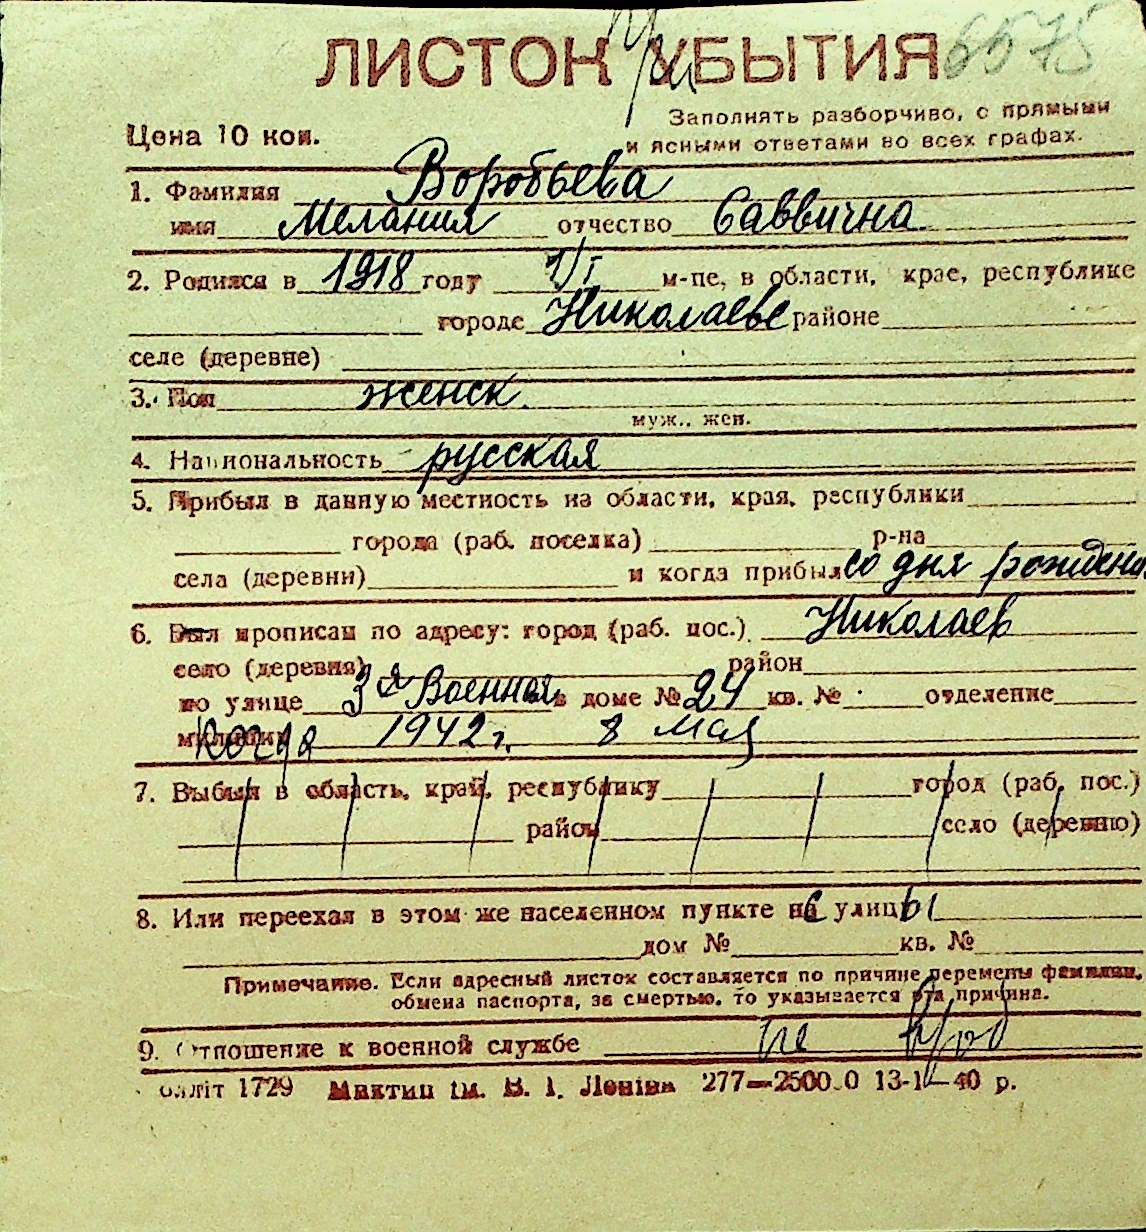 ЛИСТОК УБЫТИЯ 6575
Цена 10 коп.
Заполнять разборчиво, с прямыми
и ясными ответами во всех графах.
1. Фамилия Воробьева
имя Мелания отчество Саввична
2. Родился в 1918 году 1/I м-це, в области, крае, республике
городе Николаеве районе
селе (деревне)
3. Пол женск.
муж., жен.
4. Национальность русская
5. Прибыл в данную местность из области, края, республики
города (раб. поселка) р-на
села (деревни) и когда прибыл со дня рождения
6. Был прописан по адресу: город (раб. пос.) Николаев
село (деревня) район
по улице 3я Военная в доме № 24 кв. № отделение
милиции когда 1942 г. 8 мая
7. Выбыл в область, край, республику город (раб. пос.)
район село (деревню)
8. Или переехал в этом же населенном пункте на улицы
дом № кв. №
Примечание. Если адресный листок составляется по причине перемены фамилии,
обмена паспорта, за смертью, то указывается эта причина.
9. Отношение к военной службе не
1729 Миктип ім. В. І. Леніна 277—2500.0 40 р.